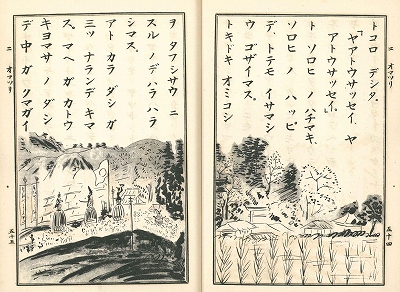 二 オマツリ
五十四
トコロ デシタ。
「ヤアトウサッセイ、ヤ
アトウサッセイ」
ト ソロヒ ノ ハチマキ、
ソロヒ ノ ハッピ
デ、トテモ イサマシ
ウ ゴザイマス。
トキドキ オミコシ
ヲ タフシサウ ニ
スル ノデ ハラハラ
シマス。
アト カラ ダシ ガ
三ツ ナランデ キマ
ス。マヘ ガ カトウ
キヨマサ ノ ダシ
デ、中 ガ クマガイ
二 オマツリ
五十五